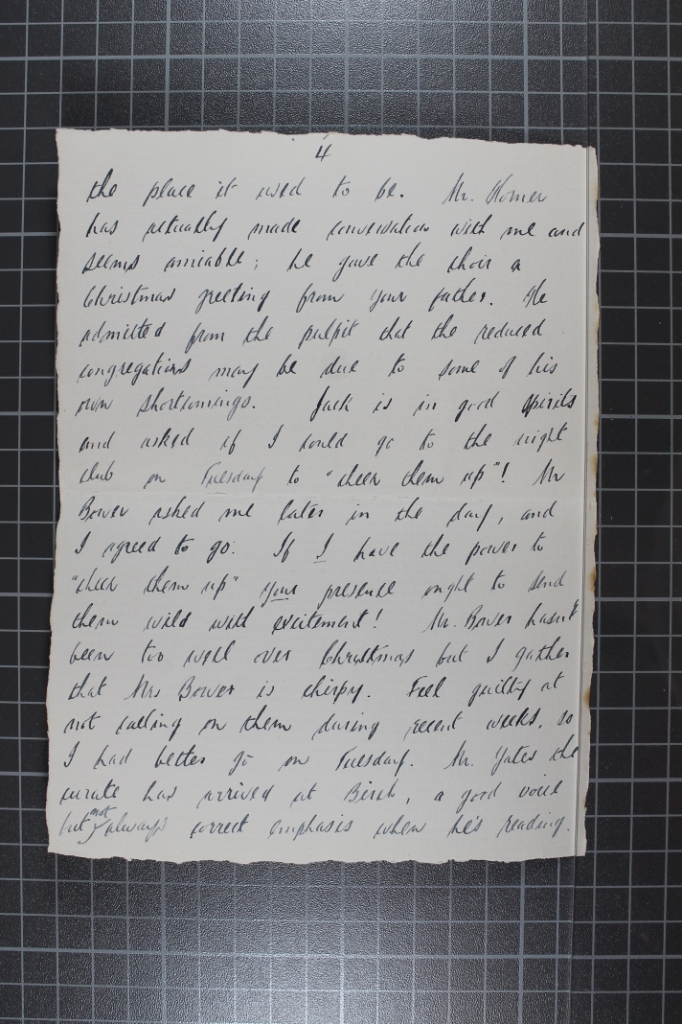 4
the place it used to be. Mr. Horner
has actually made conversation with me and
seems amiable; he gave the choir a
Christmas greeting from your father. He
admitted from the pulpit that the reduced
congregations may be due to some of his
own shortcomings. Jack is in good spirits
and asked if I could go to the night
club on Tuesday to "cheer them up"! Mr
Bower asked me later in the day, and
I agreed to go. If I have the power to
"cheer them up" your presence ought to send
them wild with excitement! Mr. Bower hasn't
been too well over Christmas but I gather
that Mrs Bower is chirpy. Feel guilty at
not calling on them during recent weeks, so
I had better go on Tuesday. Mr. Yates the
curate has arrived at Birch, a good voice
but not always correct emphasis when he's reading.